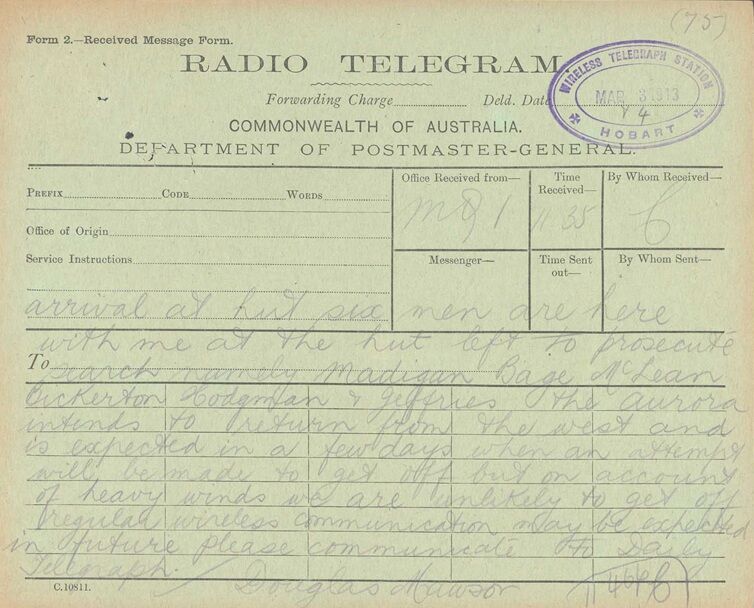 (75)
Form 2.—Received Message Form.
RADIO TELEGRAM.
WIRELESS TELEGRAPH STATION
MAR 3 1913
HOBART
Forwarding Charge Deld. Date
COMMONWEALTH OF AUSTRALIA.
DEPARTMENT OF POSTMASTER-GENERAL.
PREFIX CODE WORDS
Office of Origin
Service Instructions
Office Received from—
Time Received—
11 35
By Whom Received—
C
Messenger—
Time Sent out—
By Whom Sent—
arrival at hut six men are here
with me at the hut left to prosecute
To search namely Madigan Bage McLean
Bickerton Hodgman & Jeffries the aurora
intends to return from the west and
is expected in a few days when an attempt
will be made to get off but on account
of heavy winds we are unlikely to get off
regular wireless communication may be expected
in future please communicate to Daily
Telegraph.
Douglas Mawson
C.10811.